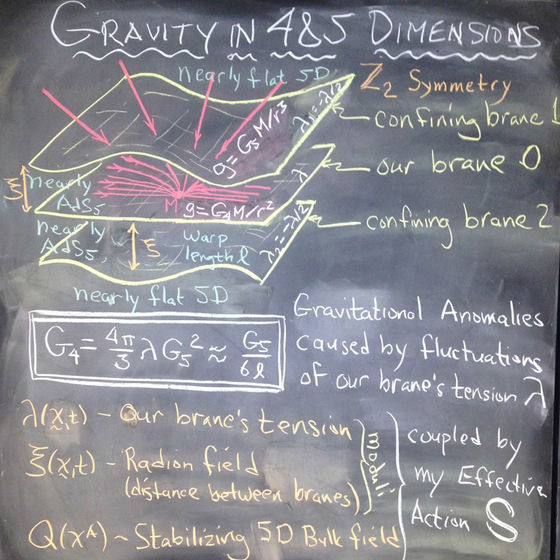 GRAVITY IN 4&5 DIMENSIONS
nearly flat 5D
Z₂ Symmetry
confining brane 1
g=G₅M/r³
λ₁=-λ/2
our brane 0
ξ
nearly AdS₅
M
g=G₄M/r²
λ
confining brane 2
nearly AdS₅
ξ
warp length ℓ
λ₂=-λ/2
nearly flat 5D
G₄ = 4π/3 λG₅² ≈ G₅/6ℓ
Gravitational Anomalies
caused by fluctuations
of our brane's tension λ
λ(x,t) - Our brane's tension
ξ(x,t) - Radion field
(distance between branes)
moduli
Q(xᴬ) ~ Stabilizing 5D Bulk field
coupled by
my Effective
Action S